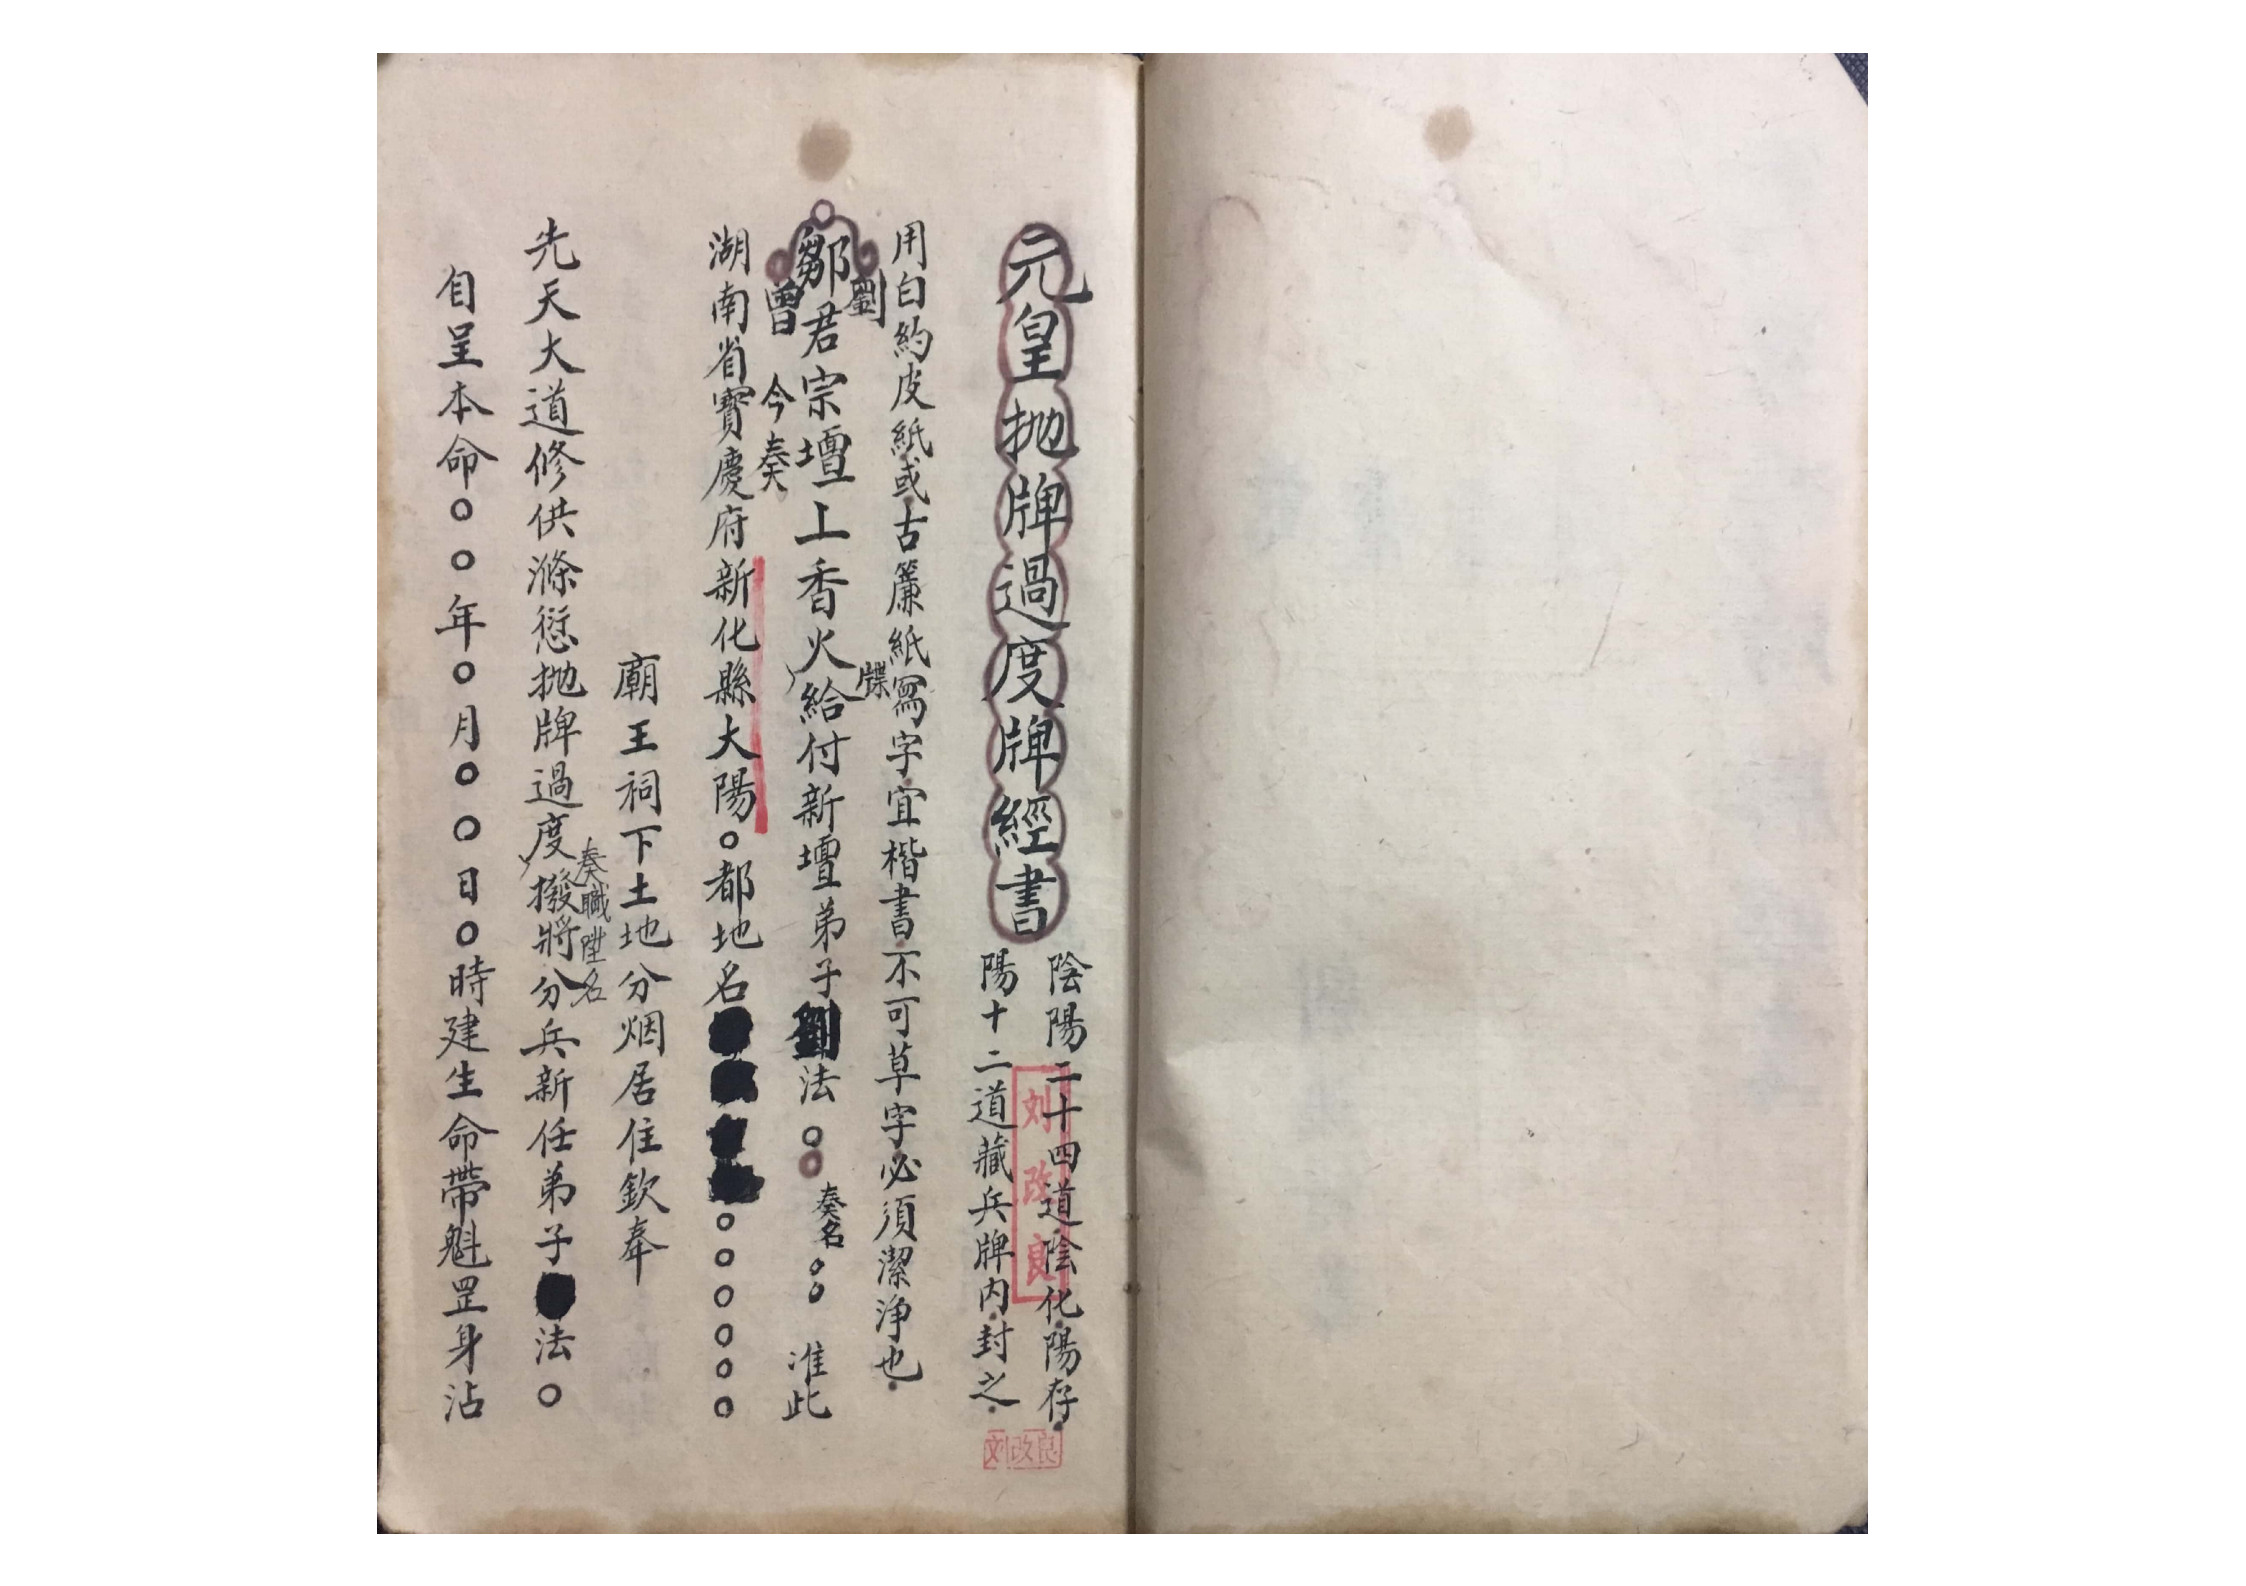 元皇抛牌過度牌經書
陰陽二十四道陰化陽存
陽十二道藏兵牌内封之
刘改良
刘改良
用白約皮紙或古簾紙寫字宜楷書不可草字必須潔淨也
劉
牒
鄒君宗壇上香火給付新壇弟子劉法〇〇奏名〇〇准此
曾
今奏
湖南省寶慶府新化縣大陽〇都地名〇〇〇〇〇
廟王祠下土地分烟居住欽奉
奏職陞名
先天大道修供滌愆抛牌過度撥將分兵新任弟子法〇
自呈本命〇〇年〇月〇〇日〇時建生命帶魁罡身沾